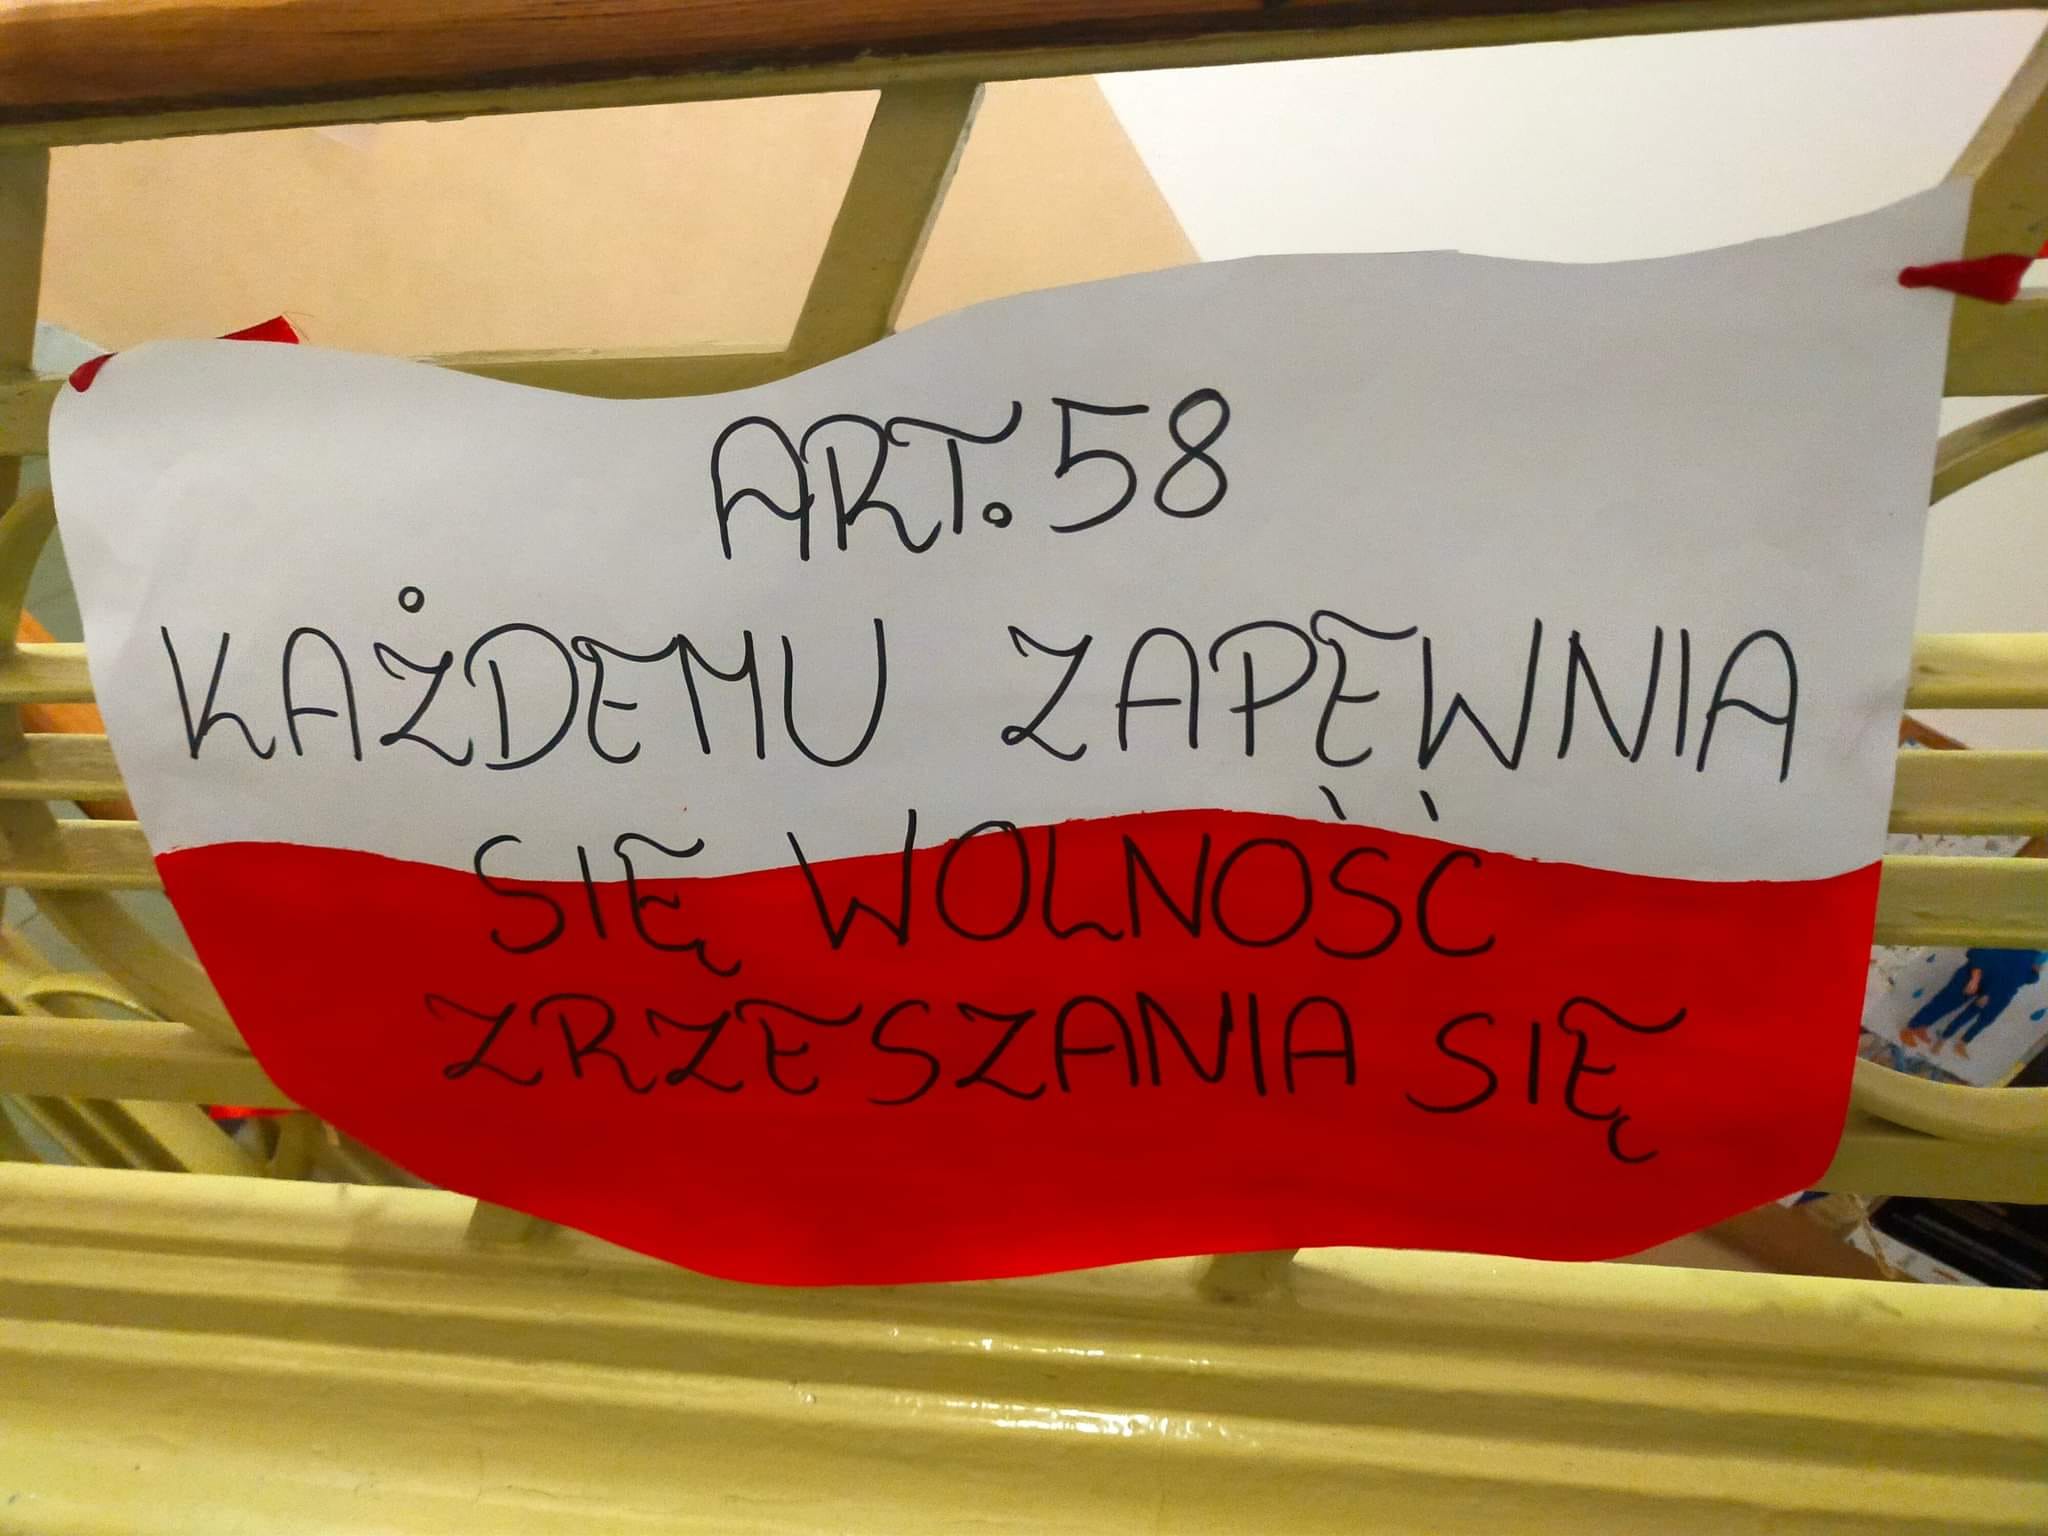 ART. 58
KAŻDEMU ZAPEWNIA
SIĘ WOLNOŚĆ
ZRZESZANIA SIĘ